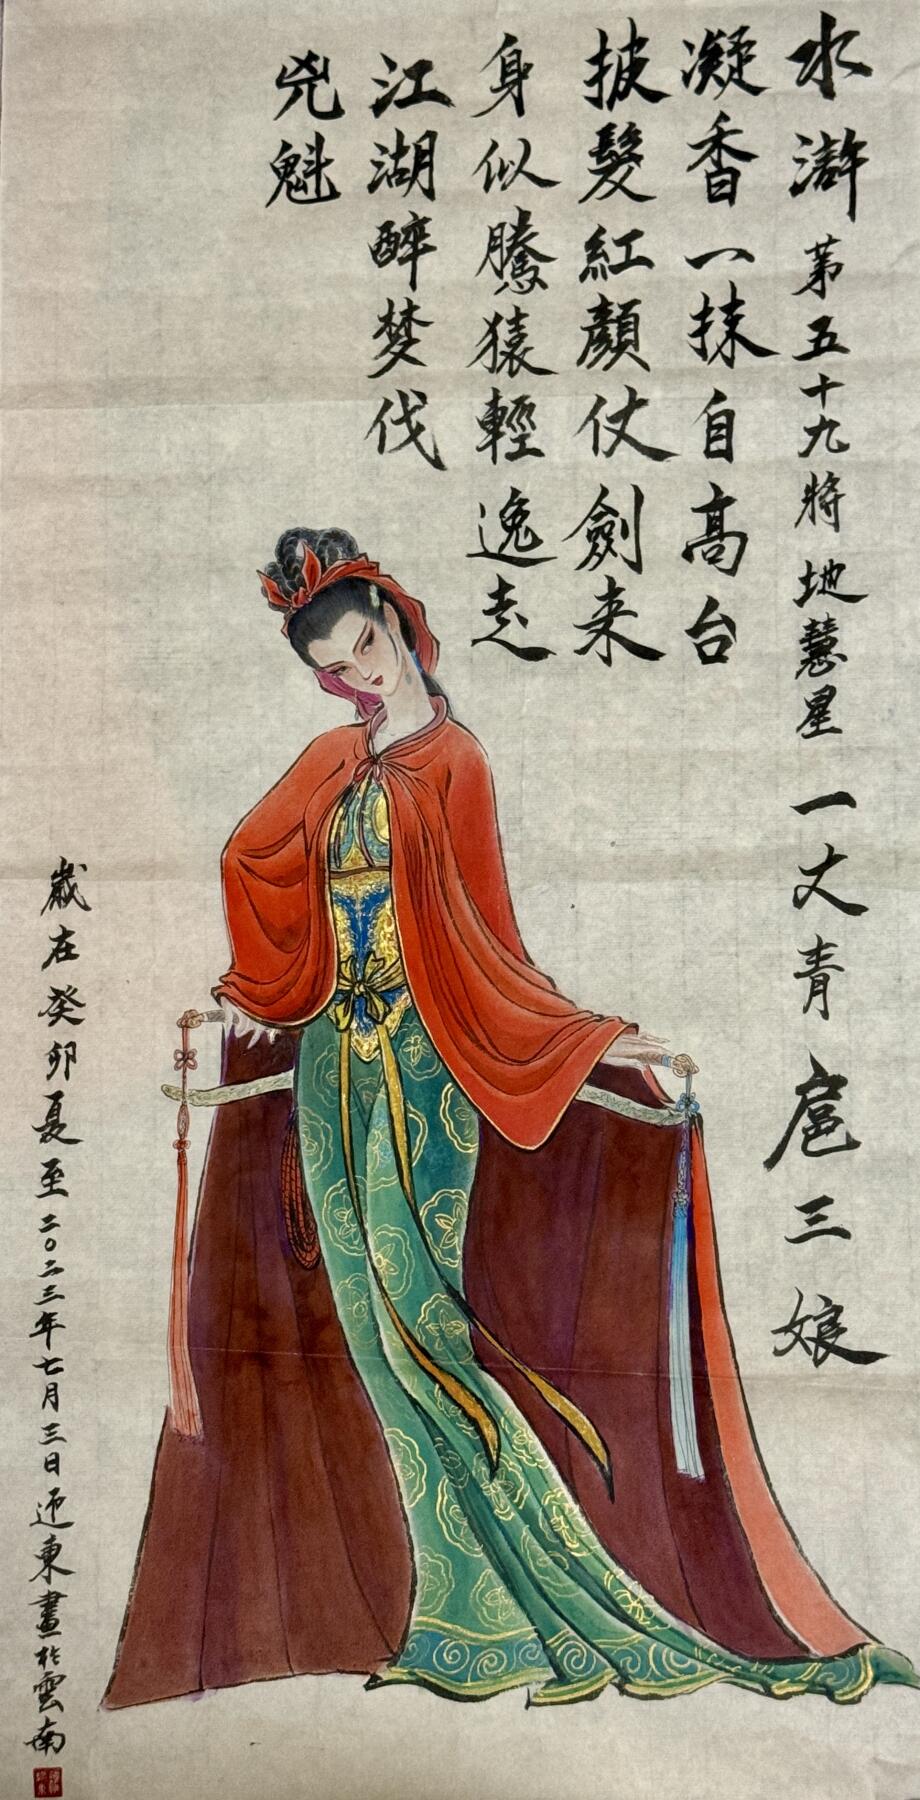 水滸第五十九將地慧星一丈青扈三娘
凝香一抹自高台
披髮紅顏仗劍来
身似騰猿輕逸走
江湖醉梦伐
兇魁
歲在癸卯夏至二〇二三年七月三日迎東畫於雲南